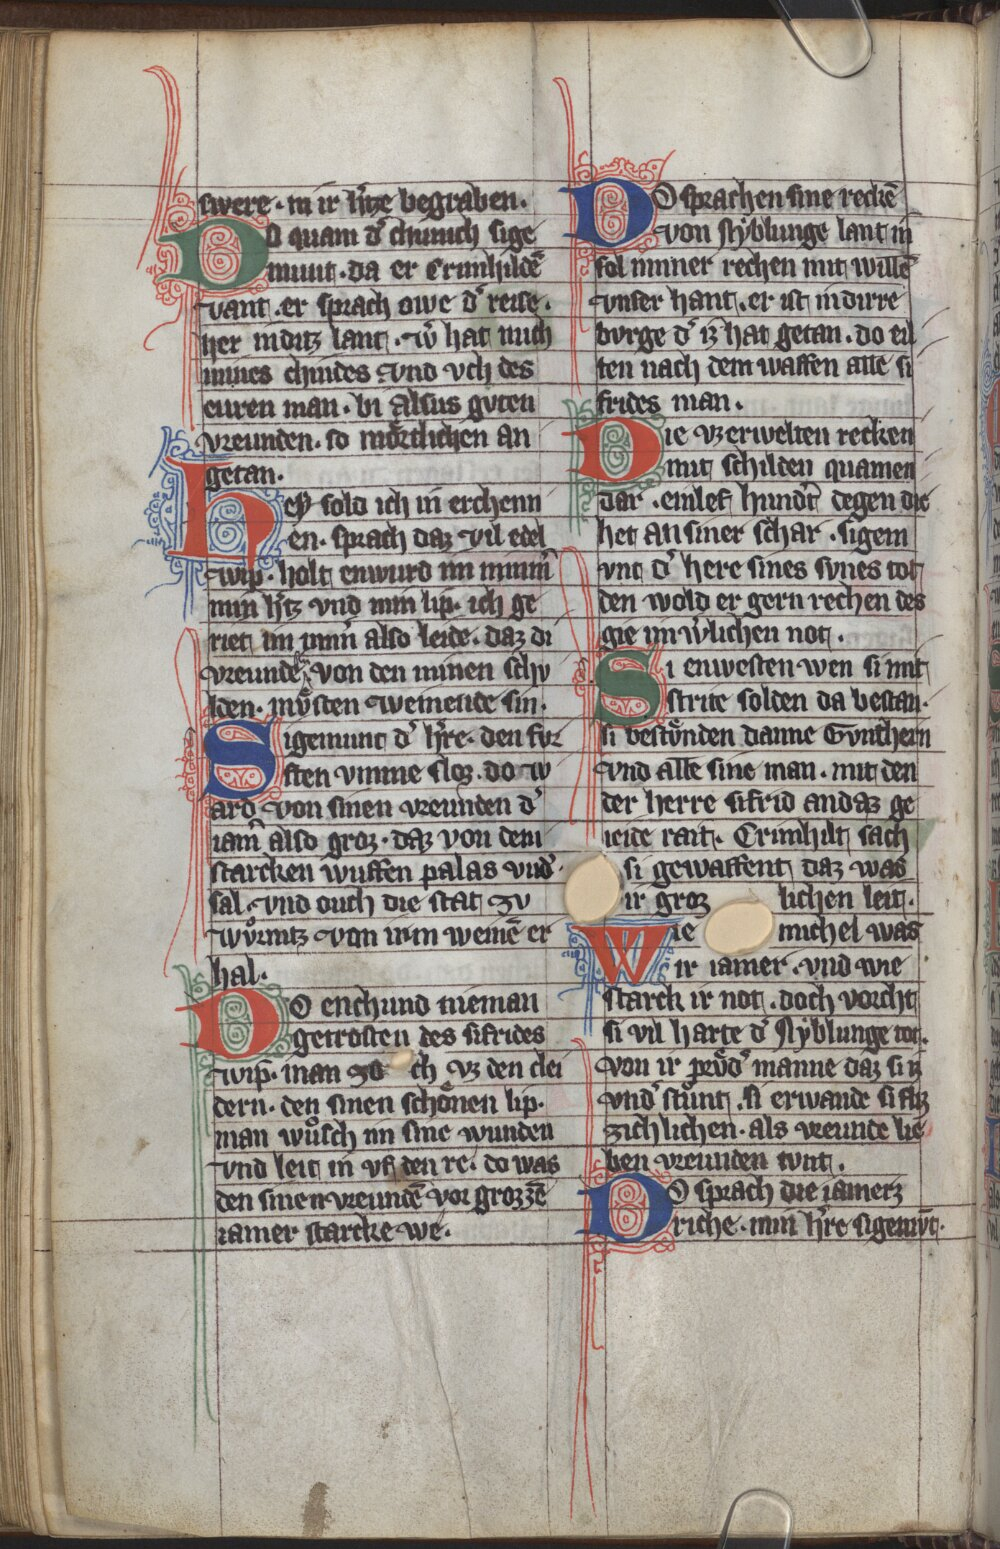 swere · in ir h͛tze begraben.
DO quam d͛ chunich sige
munt · da er Crimhildē
vant · er sprach owe d͛ reise ·
her inditz lant · w͛ hat mich
mines chindes vnd vch des
euren man · bi Alsus gvten
vreunden · so moͤrtlichen an
getan ·
Hey sold ich in erchenn
en · sprach daz vil edel
wip · holt enwurd im nimm͛
min h͛tz vnd min lip · ich ge
riet im imm͛ also leide · daz di
vreunde von den minen schv
lden · mvͤsten weinende sin ·
Sigemunt d͛ h͛re · den fvr
sten vmme sloz · do w
ard von sinen vreunden d͛
iam͛ also groz · daz von dem
starcken wuffen palas vnd͛
sal · vnd ouch die stat zv
wůrmtz von irm weinē er
hal ·
DO enchund nieman
getrosten des sifrides
wip · man zo ch vz den clei
dern · den sinen schoͤnen lip ·
man wůsch im sine wunden
vnd leit in vf den re · do was
den sinen vreundē vor grozzē
iamer starcke we ·
DO sprachen sine reckē
von Nyblunge lant in
sol immer rechen mit willē
vnser hant · er ist indirre
bvrge d͛ iz hat getan · do eil
ten nach dem waffen alle si
frides man ·
Die vzerwelten recken
mit schilden quamen
dar · einlef hundt͛ degen die
het an siner schar · sigem
vnt d͛ here sines svnes tot
den wold er gern rechen des
gie im w͛lichen not ·
Si enwesten wen si mit
strite solden da bestan ·
si bestoͤnden danne Gvnthern
vnd alle sine man · mit den
der herre sifrid an daz ge
ieide rait · Crimhilt sach
si gewaffent daz was
ir groz lichen leit ·
Wie michel was
ir iamer · vnd wie
starck ir not · doch vorcht
si vil harte d͛ Nyblunge tot ·
von ir prvͤd͛ manne daz si iz
vnd͛ stůnt · si erwande si
zichlichen · als vreunde lie
ben vreunden tvnt ·
DO sprach die iamerz
riche · min h͛re sigemvt̄ ·